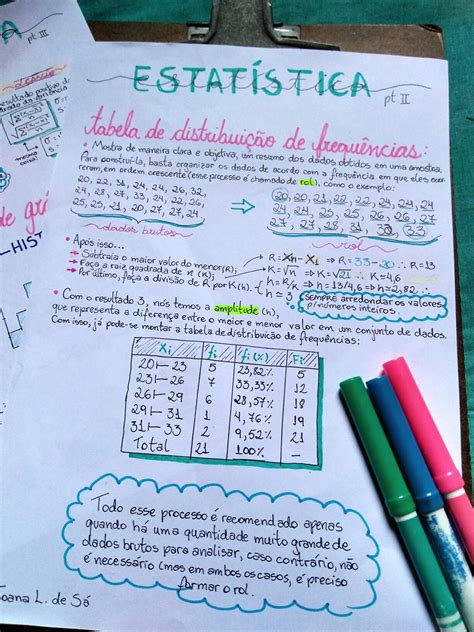 ESTATÍSTICA
pt. II
tabela de distribuição de frequências:
• Mostra de maneira clara e objetiva, um resumo dos dados obtidos em uma amostra.
Para construí-la, basta organizar os dados de acordo com a frequência em que eles ocor-
reram, em ordem crescente (esse processo é chamado de rol), como o exemplo:
20, 22, 31, 24, 24, 26, 32,
24, 28, 27, 33, 24, 22, 26,
25, 25, 21, 20, 27, 27, 24
dados brutos
20, 20, 21, 22, 22, 24, 24, 24
24, 24, 25, 25, 26, 26, 27,
27, 27, 28, 31,
rol
• Após isso...
Subtraia o maior valor do menor (R);
Faça a raiz quadrada de n (K);
Por último, faça a divisão de R por K (h).
R = Xn - Xi ⇒ R = 33 - 20 ∴ R = 13
K = √n ⇒ K = √21 ∴ K = 4,6
h = R/K ⇒ h = 13/4,6 ⇒ h = 2,82 ∴
h = 3
SEMPRE arredondar os valores
p/ números inteiros.
• Com o resultado 3, nós temos a amplitude (h),
que representa a diferença entre o maior e menor valor em um conjunto de dados.
Com isso, já pode-se mentar a tabela de distribuição de frequências:
Xi fi fi (%) Fi
20 ⊢ 23 5 23,82% 5
23 ⊢ 26 7 33,33% 12
26 ⊢ 29 6 28,57% 18
29 ⊢ 31 1 4,76% 19
31 ⊢ 33 2 9,52% 21
Total 21 100% —
Todo esse processo é recomendado apenas
quando há uma quantidade muito grande de
dados brutos para analisar, caso contrário, não
é necessário (mas em ambos os casos, é preciso
formar o rol.
Joana L. de Sá
A
pt. III
resultado positivo d
mesma
coisa
de grá
HIST